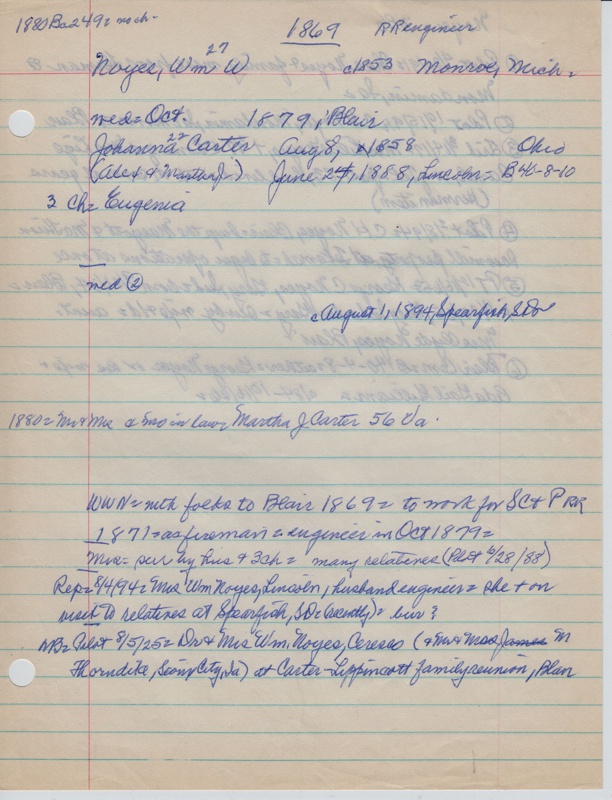 1880 Ba 249 = no ch -
1869 RR engineer
27
Noyes, Wm W c1853 Monroe, Mich =
med = Oct. 1879, Blair
22
Johanna Carter Aug 8, 1858 Ohio
(Alex & Martha J -) June 24, 1888, Lincoln = B46-8-10
3 ch = Eugenia
med ②
c August 1, 1894, Spearfish, S Dv
1880 = Mr & Mrs & mo in law = Martha J Carter 56 Va.
WWN = with folks to Blair 1869 = to work for SC & P RR
1871 = as fireman = engineer in Oct 1879 =
Mrs = sur by hus & 3 ch = many relatives (Pilot 6/28/88)
Rep = 8/4/94 = Mrs Wm Noyes, Lincoln, husband engineer = she + on
visit to relatives at Spearfish, SD (recently) = bur?
NB = Pilot 8/5/25 = Dr & Mrs Wm. Noyes, Ceresco (& Mr & Mrs James M
Thorndike, Sioux City, Ia) at Carter-Lippincott family reunion, Blair